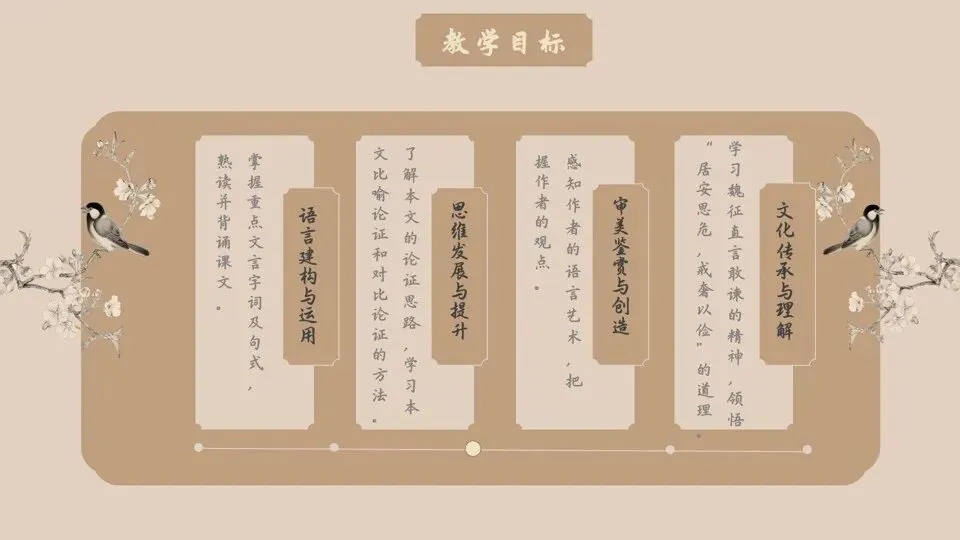 教学目标
语言建构与运用
掌握重点文言字词及句式，
熟读并背诵课文。
思维发展与提升
了解本文的论证思路,学习本
文比喻论证和对比论证的方法。
审美鉴赏与创造
感知作者的语言艺术，把
握作者的观点。
文化传承与理解
学习魏征直言敢谏的精神,领悟
“居安思危,戒奢以俭”的道理。